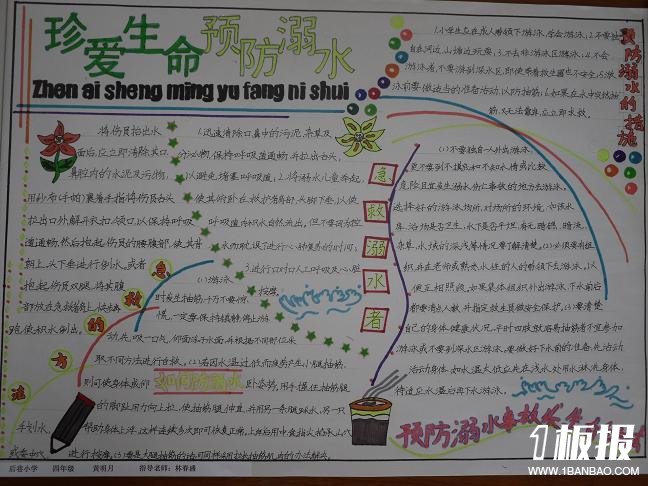 珍爱生命 预防溺水
Zhen ai sheng ming yu fang ni shui
预防溺水的措施
1.小学生应在成人带领下游泳,学会游泳;2.不要独
自在河边、山塘边玩耍;3.不去非游泳区游泳;4.不会
游泳者,不要游到深水区,即使带着救生圈也不安全;5.游
泳前要做适当的准备活动,以防抽筋;6.如果在水中突然抽
筋,又无法靠岸,立即求救。
将伤员抬出水
面后,应立即清除其口、
鼻腔内的水、泥及污物,
用纱布(手帕)裹着手指将伤员舌头
拉出口外,解开衣扣、领口,以保持呼吸
道通畅,然后抱起伤员的腰腹部,使其背
朝上、头下垂进行倒水。或者
抱起伤员双腿,将其腹
部放在急救者肩上,快步奔
跑使积水倒出。
急救的方法
1.迅速清除口鼻中的污泥、杂草及
分泌物,保持呼吸道通畅,并拉出舌头,
以避免堵塞呼吸道;2.将溺水儿童举起,
使其俯卧在救护者肩部,头脚下垂,以使
呼吸道内积水自然流出。但不要因为控
水而耽误了进行心肺复苏的时间;
3.进行口对口人工呼吸及心脏
按摩。
急救溺水者
(1)游泳
时发生抽筋,千万不要惊
慌,一定要保持镇静,停止游
动,先吸一口气,仰面浮于水面,并根据不同部位采
取不同方法进行自救。(2)若因水温过低而疲劳产生小腿抽筋,
则可使身体成仰
卧姿势,用手握住抽筋腿
的脚趾,用力向上拉,使抽筋腿伸直,并用另一条腿踩水,另一只
手划水,帮助身体上浮,这样连续多次即可恢复正常。
如何防溺水
(1)不要独自一人外出游泳,
更不要到不摸底和不知水情或比较
危险且宜发生溺水伤亡事故的地方去游泳。
选择好的游泳场所,对场所的环境,如该水
库、浴场是否卫生,水下是否平坦,有无暗礁、暗流、
杂草,水域的深浅等情况要了解清楚。(2)必须要有组
织并在老师或熟悉水性的人的带领下去游泳,以
便互相照顾。如果集体组织外出游泳,下水前后
都要清点人数,并指定救生员做安全保护。(3)要清楚
自己的身体健康状况,平时四肢就容易抽筋者不宜参加
游泳或不要到深水区游泳。要做好下水前的准备,先活动
活动身体,如水温太低应先在浅水处用水淋洗身体,
待适应水温后再下水游泳。
预防溺水
后巷小学 四年级 黄明月 指导老师:林春盛
1板报
WWW.1BANBAO.COM